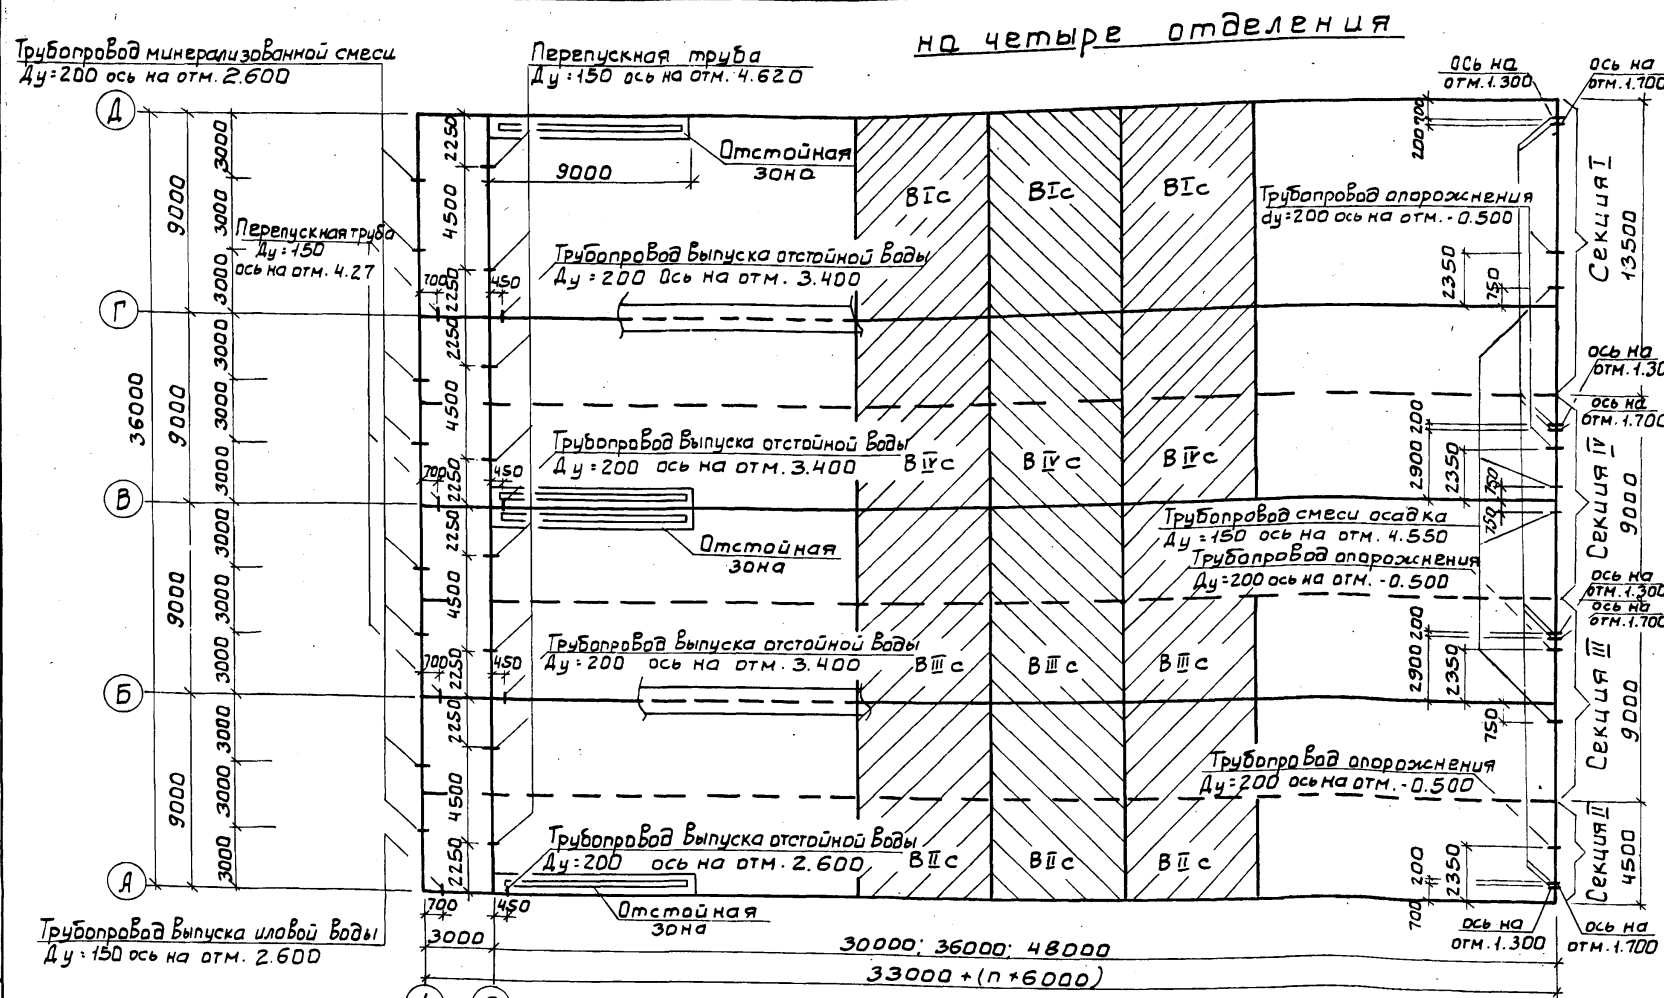 на четыре отделения
Трубопровод минерализованной смеси
Ду=200 ось на отм. 2.600
Перепускная труба
Ду=150 ось на отм. 4.620
ось на
отм.1.300
ось на
отм.1.700
Д
Г
В
Б
А
36000
9000
9000
9000
9000
3000
3000
3000
3000
3000
3000
3000
3000
3000
3000
3000
3000
Перепускная труба
Ду=150
ось на отм. 4.27
2250
4500
2250
2250
4500
2250
2250
4500
2250
2250
4500
2250
700
450
700
450
700
450
700
450
9000
Отстойная
зона
Трубопровод выпуска отстойной воды
Ду=200 ось на отм. 3.400
Трубопровод выпуска отстойной воды
Ду=200 ось на отм. 3.400
Отстойная
зона
Трубопровод выпуска отстойной воды
Ду=200 ось на отм. 3.400
Трубопровод выпуска отстойной воды
Ду=200 ось на отм. 2.600
Отстойная
зона
ВIс ВIс ВIс
ВIVс ВIVс ВIVс
ВIIIс ВIIIс ВIIIс
ВIIс ВIIс ВIIс
Трубопровод опорожнения
dу=200 ось на отм. -0.500
Трубопровод смеси осадка
Ду=150 ось на отм. 4.550
Трубопровод опорожнения
Ду=200 ось на отм. -0.500
Трубопровод опорожнения
Ду=200 ось на отм. -0.500
200 700
2350
750
2900 200
2350
750
750
2900 200
2350
750
700 200
2350
Секция I
13500
ось на
отм.1.30
ось на
отм.1.700
Секция IV
9000
ось на
отм.1.300
ось на
отм.1.700
Секция III
9000
Секция II
4500
ось на
отм.1.300
ось на
отм.1.700
Трубопровод выпуска иловой воды
Ду=150 ось на отм. 2.600
3000
30000; 36000; 48000
33000+(n*6000)
1